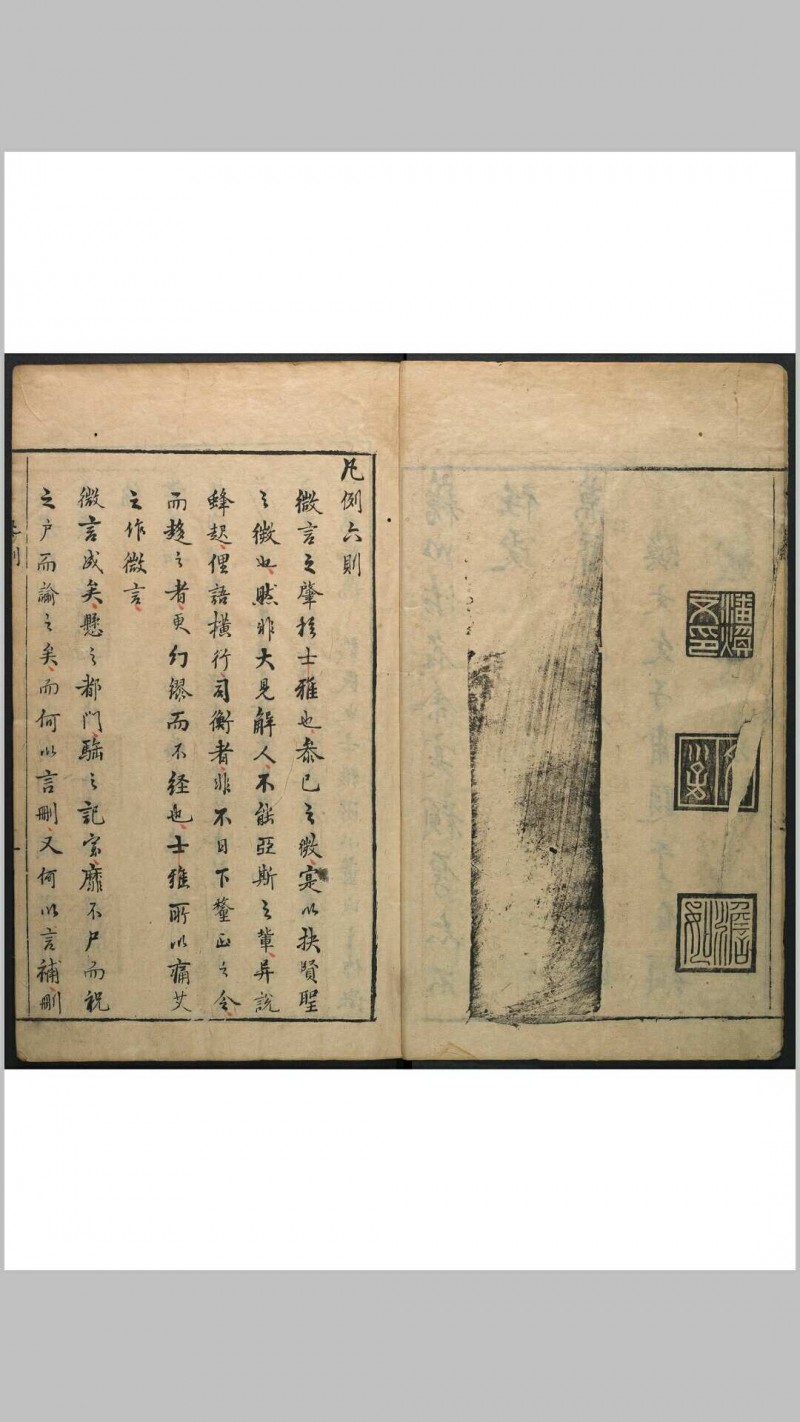 潘煥文印
澹如
凡例六則
微言之肇於士雅也忝已之微寔以抉賢聖
之微也然非大見解人不能亞斯之輩异說
蜂起俚語橫行司衡者非不日下釐正之令
而趍之者更幻鏐而不經也士雅所以痛艾
之作微言
微言成矣懸之都門驰之記室靡不尸而祝
之户而諭之矣而何以言刪又何以言補刪
凡例